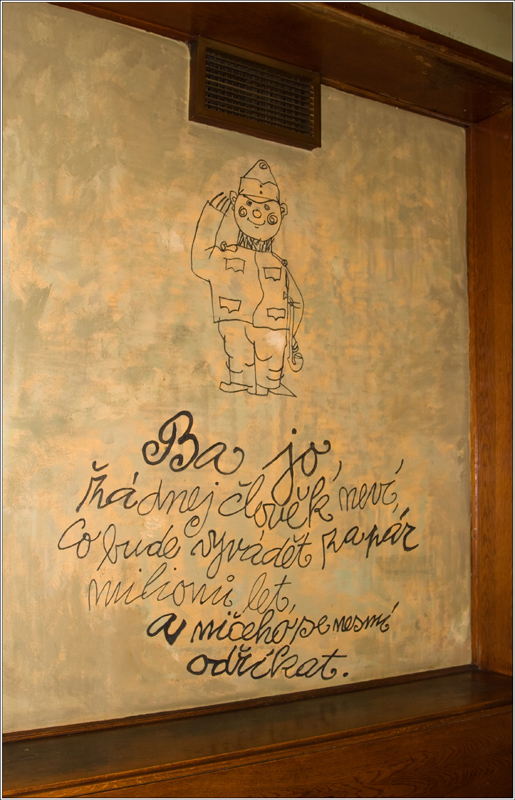 Ba jo,
žádnej člověk neví,
co bude vyvádět za pár
milionů let,
a ničeho se nesmí
odříkat.